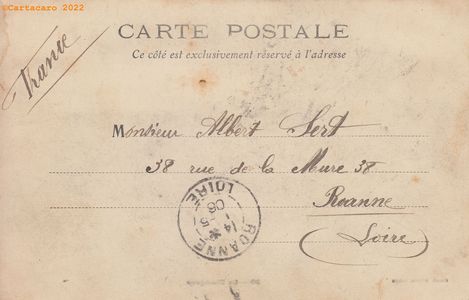 ©Cartacaro 2022
CARTE POSTALE
Ce côté est exclusivement réservé à l'adresse
France
Monsieur Albert Sert
38 rue de la Mure 38
Roanne
(Loire)
ROANNE
14
-5
06
LOIRE